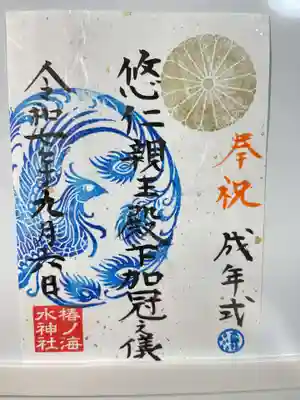 奉祝
成年式
悠仁親王殿下加冠之儀
令和七年九月六日
椿ノ海
水神社